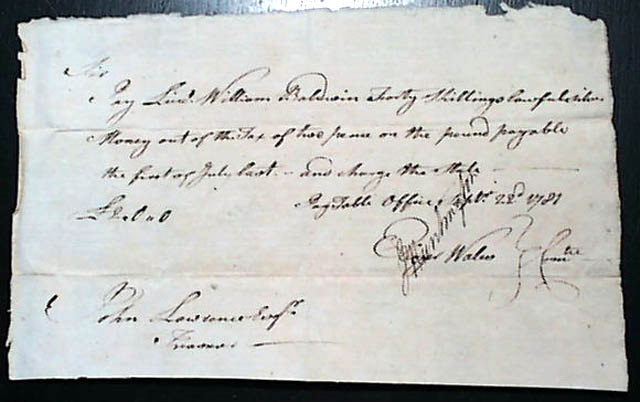 Sir
Pay Lieut. William Baldwin Forty Shillings lawful silver
Money out of the Tax of two pence on the pound payable
the first of July last - and charge the State
£2.0.0 Pay Table Office Sept. 22d 1781
Huntington
Wales } Comtee
John Lawrence Esqr.
Treasurer